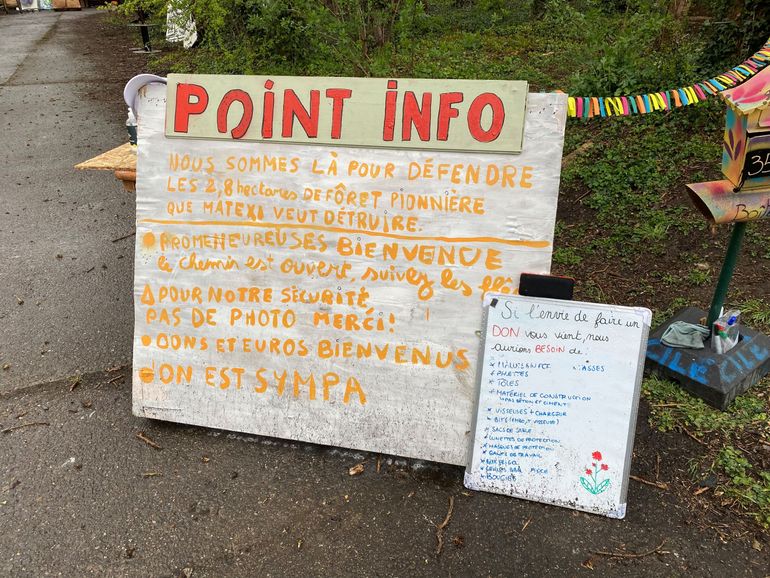 POINT INFO
NOUS SOMMES LÀ POUR DÉFENDRE
LES 2,8 hectares DE FÔRET PIONNIÈRE
QUE MATEXI VEUT DÉTRUIRE.
PROMENEUREUSES BIENVENUE
le chemin est ouvert, suivez les
POUR NOTRE SÉCURITÉ
PAS DE PHOTO MERCI!
DONS ET EUROS BIENVENUS
ON EST SYMPA
Si l'envie de faire un
DON vous vient, nous
aurions BESOIN de:
PALETTES
TÔLES
MATÉRIEL DE CONSTRUCTION
PAS BÉTON ET CIMENT
VISSEUSES + CHARGEUR
SACS DE SABLE
LUNETTES DE PROTECTION
MASQUES DE PROTECTION
GANTS DE TRAVAIL
BOUGIES
35
CILE CILE